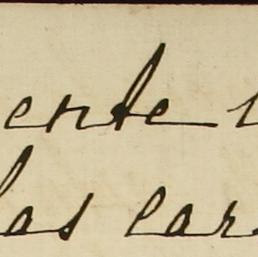 ente
las car